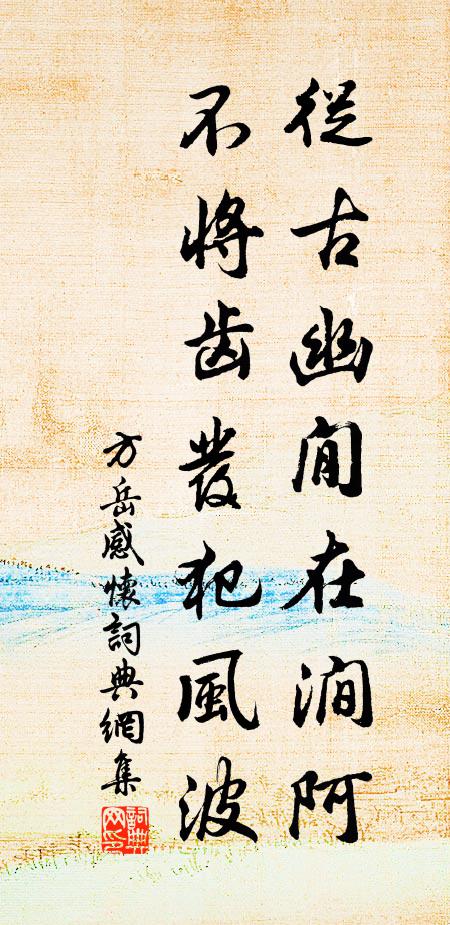 從古幽閒在澗阿
不將齿發犯風波
方岳感懷詞典網集
詞典
网印